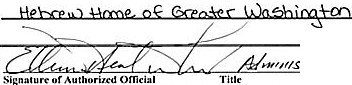 Hebrew Home of Greater Washington
Adminis
Signature of Authorized Official Title